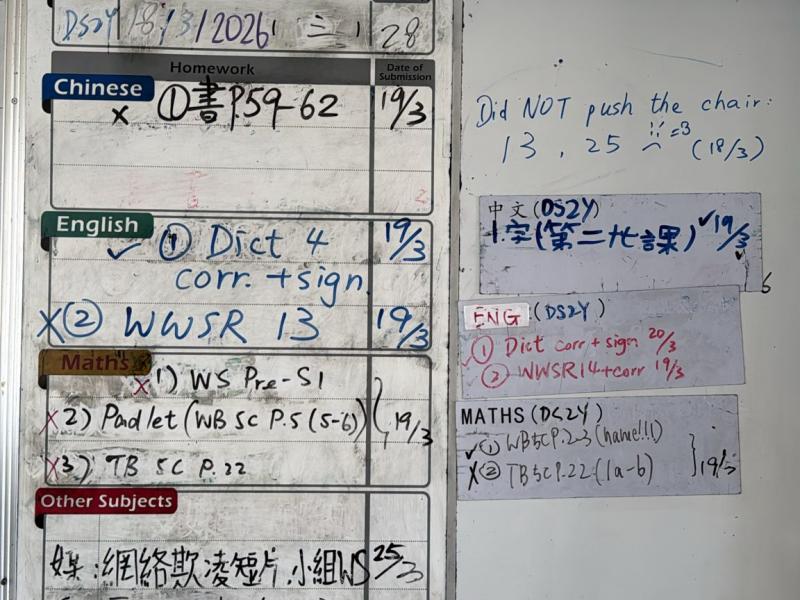 DS2Y 18/3/2026 (三) 28
Homework Date of Submission
Chinese
x ①書P.59-62 19/3
English
✓ ① Dict 4 19/3
corr. + sign.
X ② WWSR 13 19/3
Maths
x 1) WS Pre-S1
x 2) Padlet (WB 5C P.5 (5-6)) 19/3
x 3) TB 5C P.22
Other Subjects
媒:網絡欺凌短片小組WS 25/3
Did NOT push the chair:
13, 25 (18/3)
中文(DS2Y)
1.字(第二十課) ✓ 19/3
6
ENG (DS2Y)
✓ ① Dict corr + sign 20/3
② WWSR14+corr 19/3
MATHS (DS2Y)
✓ ① WB5C P.2-3 (name!!!)
X ② TB5C P.22 (1a-b) 19/3